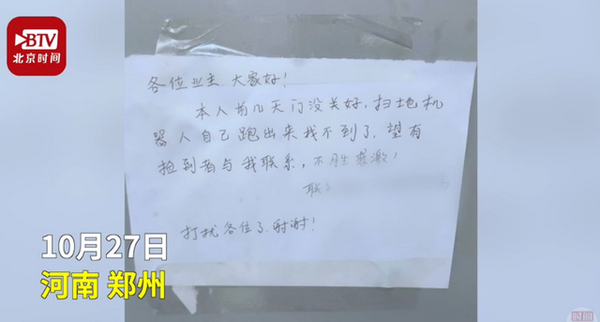 BTV
北京时间
各位业主 大家好!
本人前几天门没关好,扫地机
器人自己跑出来找不到了,望有
捡到者与我联系,不胜感激!
联
打扰各位了,谢谢!
10月27日
河南 郑州
时间